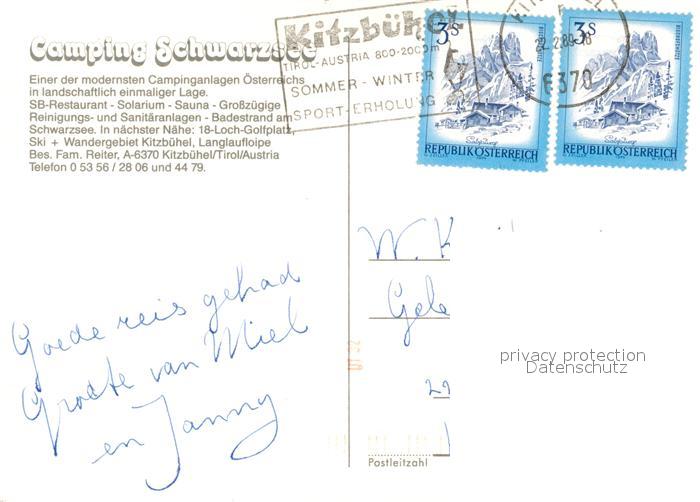 Camping Schwarzsee
Einer der modernsten Campinganlagen Österreichs
in landschaftlich einmaliger Lage.
SB-Restaurant - Solarium - Sauna - Großzügige
Reinigungs- und Sanitäranlagen - Badestrand am
Schwarzsee. In nächster Nähe: 18-Loch-Golfplatz,
Ski + Wandergebiet Kitzbühel, Langlaufloipe
Bes. Fam. Reiter, A-6370 Kitzbühel/Tirol/Austria
Telefon 0 53 56 / 28 06 und 44 79.
Kitzbühel
TIROL-AUSTRIA 800-2000m
SOMMER - WINTER
SPORT-ERHOLUNG
6370
3S
REPUBLIK ÖSTERREICH
3S
REPUBLIK ÖSTERREICH
Goede reis gehad
Groete van Wiel
en Janny
W. K
Gele
29
privacy protection
Datenschutz
Postleitzahl